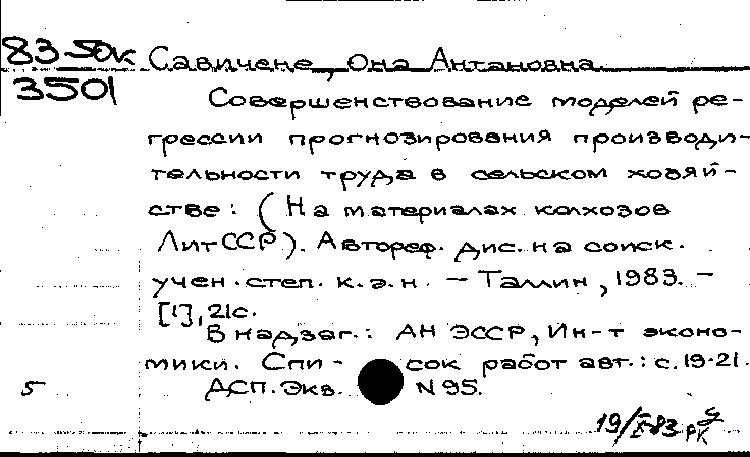 83-50к Савичене, Она Антановна.
3501 Совершенствование моделей ре-
грессии прогнозирования производи-
тельности труда в сельском хозяй-
стве: (На материалах колхозов
ЛитССР). Автореф. дис. на соиск.
учен. степ. к.э.н. – Таллин, 1983. –
[1], 21с.
В надзаг.: АН ЭССР, Ин-т эконо-
мики. Спи- сок работ авт.: с. 19-21.
5 ДСП. Экз. N 95.
19/X-83